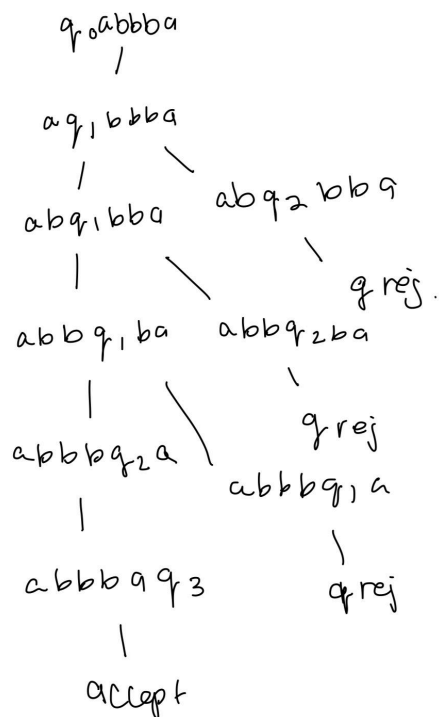 q₀abbba
aq₁bbba
abq₁bba
abq₂bba
q rej.
abbq₁ba
abbq₂ba
q rej
abbbq₂a
abbbq₁a
abbbaq₃
q rej
accept